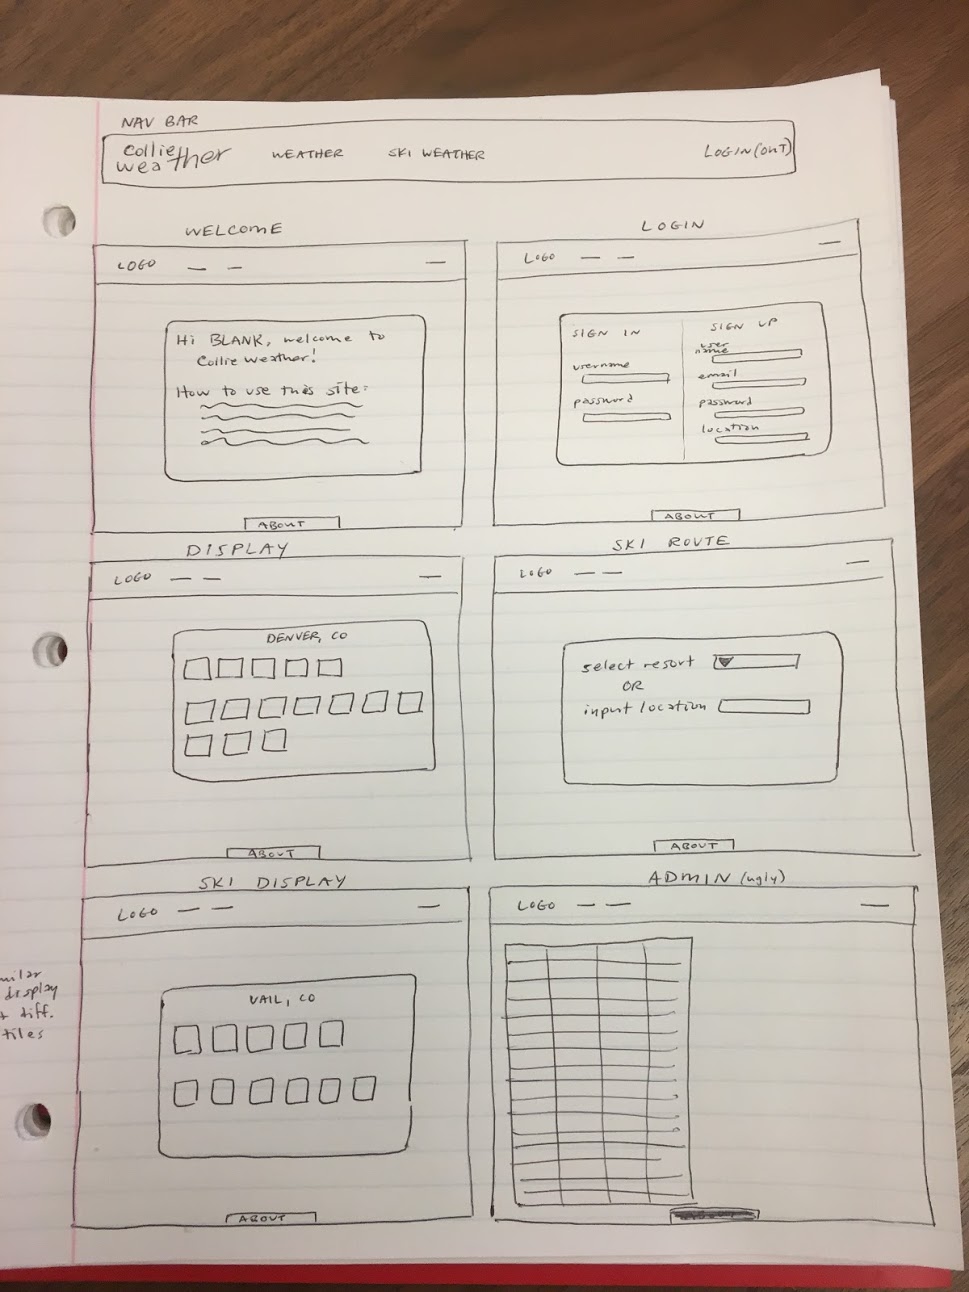 NAV BAR
Collie
weather
WEATHER
SKI WEATHER
LOGIN(OUT)
WELCOME
LOGO
Hi BLANK, welcome to
Collie Weather!
How to use this site:
ABOUT
LOGIN
LOGO
SIGN IN
username
password
SIGN UP
user
name
email
password
location
ABOUT
DISPLAY
LOGO
DENVER, CO
ABOUT
SKI ROUTE
LOGO
select resort
OR
input location
ABOUT
SKI DISPLAY
LOGO
VAIL, CO
ABOUT
display
diff.
tiles
ADMIN (ugly)
LOGO